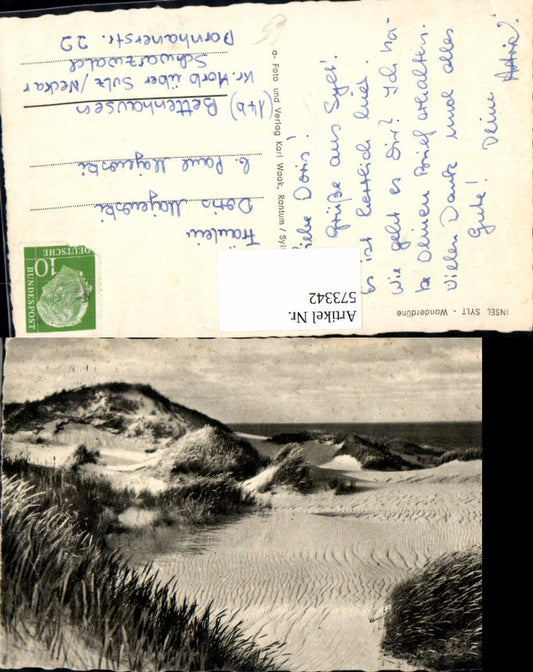 INSEL SYLT - Wanderdüne
Liebe Doris!
Grüße aus Sylt!
Es ist herrlich hier.
Wie geht es Dir? Ich ha-
be Deinen Brief erhalten.
Vielen Dank und alles
Gute! Deine
a- Foto und Verlag Karl Waak, Rantum / Sylt
DEUTSCHE
BUNDESPOST
10
Fräulein
Doris Majewski
b. Paul Majewski
(14b) Bettenhausen
Kr. Horb über Sulz / Neckar
Schwarzwald
Dornhanerstr. 22
Artikel Nr.
573342